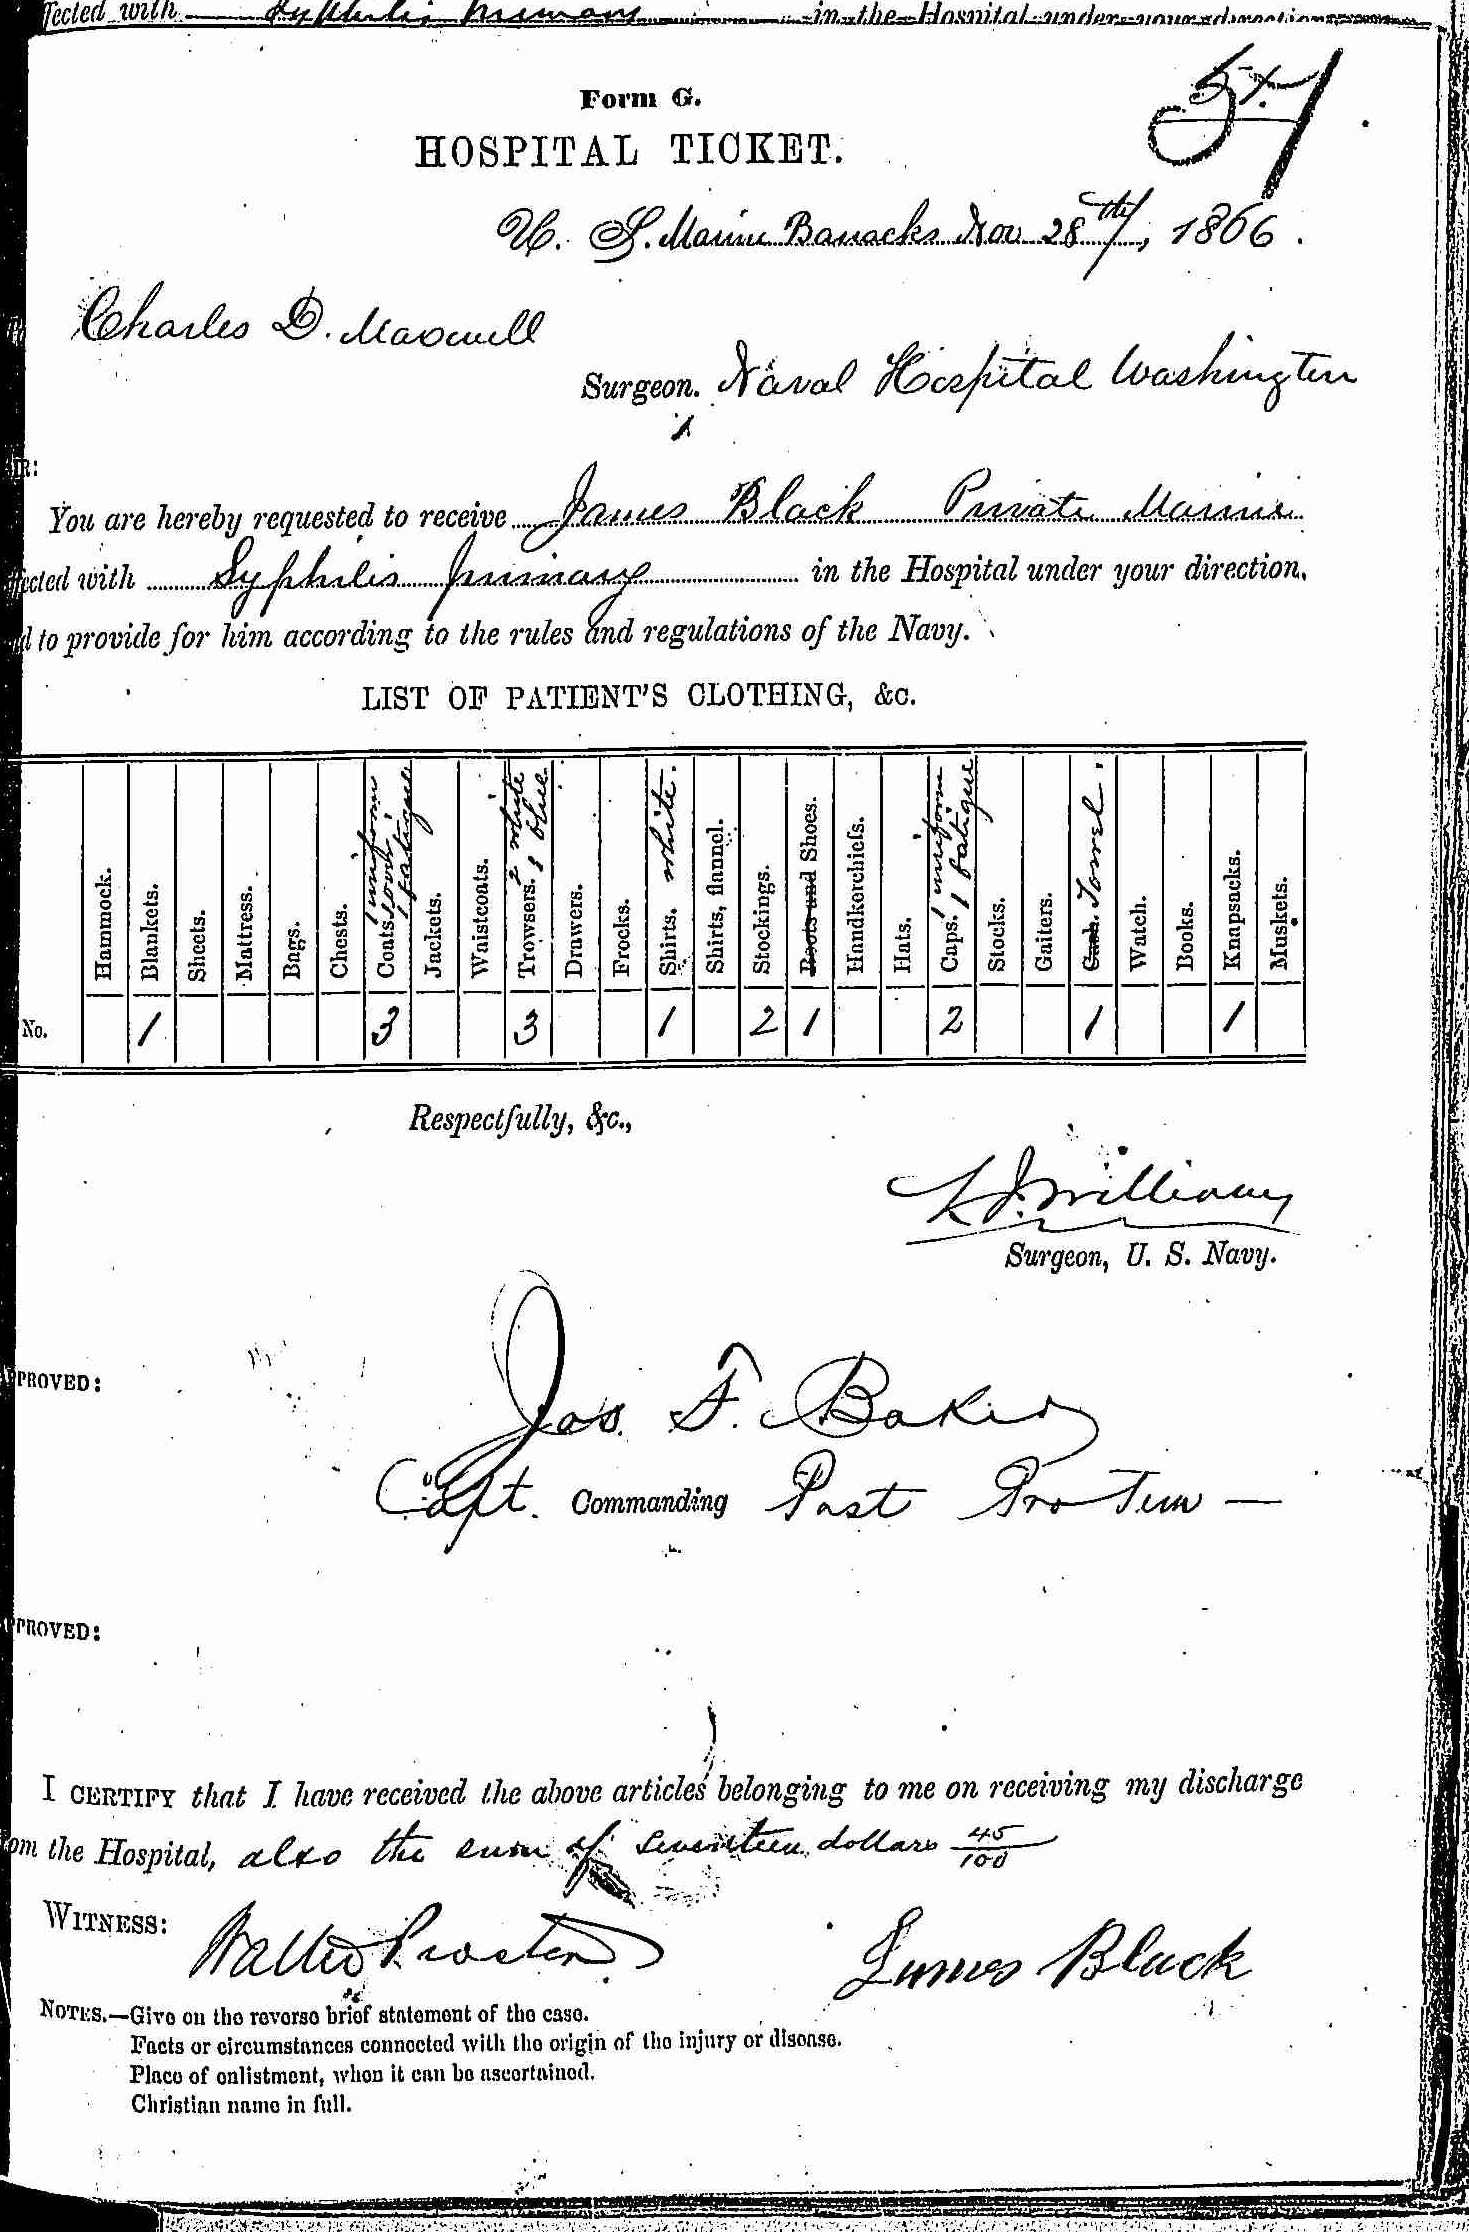 fected with Syphilis Primary in the Hospital under your direction
57
Form G.
HOSPITAL TICKET.
U. S. Marine Barracks Nov 28th, 1866.
Charles D. Maxwell
Surgeon. Naval Hospital Washington
IR:
You are hereby requested to receive James Black Private Marine
ected with Syphilis primary in the Hospital under your direction,
d to provide for him according to the rules and regulations of the Navy.
LIST OF PATIENT'S CLOTHING, &c.
Hammock. Blankets. Sheets. Mattress. Bags. Chests. Coats. 1 uniform 1 over 1 fatigue Jackets. Waistcoats. Trowsers. 2 white 1 blue Drawers. Frocks. Shirts. white. Shirts, flannel. Stockings. Boots and Shoes. Handkerchiefs. Hats. Caps. 1 uniform 1 fatigue Stocks. Gaiters. Towel. Watch. Books. Knapsacks. Muskets.
No. 1 3 3 1 2 1 2 1 1
Respectfully, &c.,
J. Williams
Surgeon, U. S. Navy.
PPROVED:
Jas. F. Baker
Capt. Commanding Post Pro Tem —
PPROVED:
I CERTIFY that I have received the above articles belonging to me on receiving my discharge
om the Hospital, also the sum of Seventeen dollars 45/100
WITNESS: Walter Proctor
James Black
NOTES.—Give on the reverse brief statement of the case.
Facts or circumstances connected with the origin of the injury or disease.
Place of enlistment, when it can be ascertained.
Christian name in full.